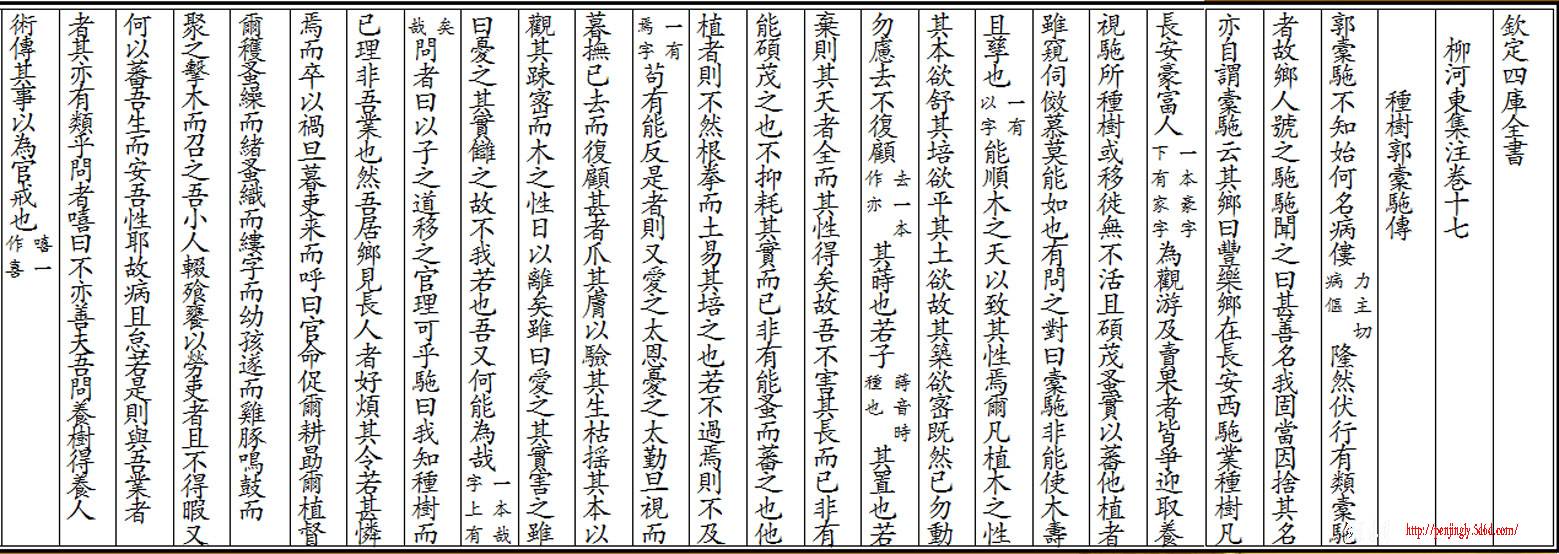 欽定四庫全書
柳河東集注卷十七
種樹郭橐駞傳
郭橐駞不知始何名病僂力主切病傴隆然伏行有類橐駞
者故鄉人號之駞駞聞之曰甚善名我固當因捨其名
亦自謂橐駞云其鄉曰豐樂鄉在長安西駞業種樹凡
長安豪富人一本豪字下有家字為觀游及賣果者皆爭迎取養
視駞所種樹或移徙無不活且碩茂蚤實以蕃他植者
雖窺伺傚慕莫能如也有問之對曰橐駞非能使木壽
且孳也一有以字能順木之天以致其性焉爾凡植木之性
其本欲舒其培欲平其土欲故其築欲宻既然已勿動
勿慮去不復顧去一本作亦其蒔也若子蒔音時種也其置也若
棄則其天者全而其性得矣故吾不害其長而已非有
能碩茂之也不抑耗其實而已非有能蚤而蕃之也他
植者則不然根拳而土易其培之也若不過焉則不及
一有焉字苟有能反是者則又愛之太恩憂之太勤旦視而
暮撫已去而復顧甚者爪其膚以驗其生枯揺其本以
觀其踈宻而木之性日以離矣雖曰愛之其實害之雖
曰憂之其實讎之故不我若也吾又何能為哉一本哉字上有
矣哉問者曰以子之道移之官理可乎駞曰我知種樹而
已理非吾業也然吾居鄉見長人者好煩其令若甚憐
焉而卒以禍旦暮吏来而呼曰官命促爾耕勗爾植督
爾穫蚤繰而緒蚤織而縷字而幼孩遂而雞豚鳴鼓而
聚之擊木而召之吾小人輟飱饔以勞吏者且不得暇又
何以蕃吾生而安吾性耶故病且怠若是則與吾業者
者其亦有類乎問者嘻曰不亦善夫吾問養樹得養人
術傳其事以為官戒也嘻一作喜
http://penjingly.5d6d.com/